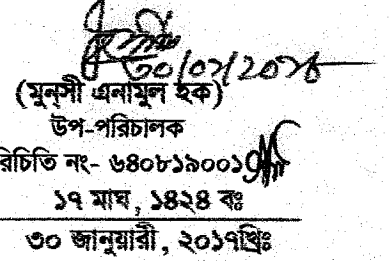 ৩০/০১/২০১৮
(মুন্সী এনামুল হক)
উপ-পরিচালক
রিচিতি নং- ৬৪০৮১৯০০১৩
১৭ মাঘ, ১৪২৪ বঃ
৩০ জানুয়ারী, ২০১৭খ্রিঃ